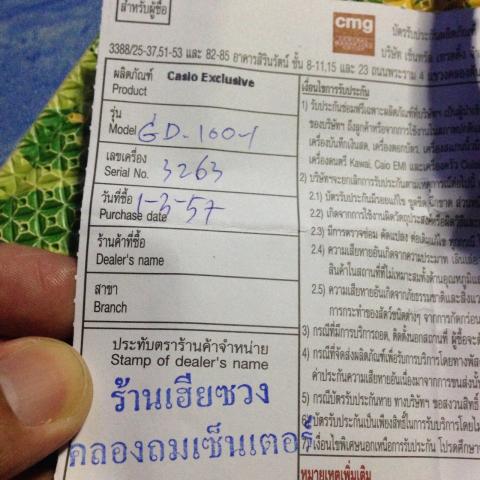 สำหรับผู้ซื้อ
cmg
บัตรรับประกันผลิตภัณฑ์
บริษัท เซ็นทรัล เทรดดิ้ง
3388/25-37,51-53 และ 82-85 อาคารสิรินรัตน์ ชั้น 8-11,15 และ 23 ถนนพระราม 4 แขวงคลองตัน
ผลิตภัณฑ์ Casio Exclusive
Product
รุ่น
Model GD-100-1
เลขเครื่อง
Serial No. 3263
วันที่ซื้อ 1-3-57
Purchase date
ร้านค้าที่ซื้อ
Dealer's name
สาขา
Branch
ประทับตราร้านค้าจำหน่าย
Stamp of dealer's name
ร้านเฮียซวง
คลองถมเซ็นเตอร์
เงื่อนไขการรับประกัน
1) รับประกันซ่อมฟรีเฉพาะผลิตภัณฑ์ที่บริษัทฯ เป็นผู้นำเข้า
ของบริษัทฯ ถึงลูกค้าหรือจากการใช้งานในสภาพปกติ
เครื่องบันทึกเงินสด, เครื่องตอกบัตร,
เครื่องดนตรี Kawai, Casio EMI และเครื่องครัว
2) บริษัทฯจะยกเลิกการรับประกันตามเหตุการณ์ดังต่อไปนี้
2.1) บัตรรับประกันมีรอยแก้ไข ขูดขีด ฉีกขาด
2.2) เกิดจากการใช้งานผิดวัตถุประสงค์หรือผิดวิธี
2.3) มีการตรวจซ่อม ดัดแปลง ต่อเติมแก้ไข
2.4) ความเสียหายอันเกิดจากความประมาท
สินค้าในสถานที่ที่ไม่เหมาะสมทั้งด้านอุณหภูมิ
2.5) ความเสียหายอันเกิดจากภัยธรรมชาติและสิ่งแวดล้อม
การกระทำของสัตว์ชนิดต่างๆ จากการกัดกร่อน
3) กรณีที่มีบริการถอด, ติดตั้งนอกสถานที่ ผู้ซื้อจะ
4) กรณีที่จัดส่งผลิตภัณฑ์เพื่อรับการบริการโดยทาง
ค่าประกันความเสียหายอันเนื่องมาจากการขนส่ง
5) กรณีบัตรรับประกันหาย ทางบริษัทฯ ขอสงวนสิทธิ์
6) บัตรรับประกันเป็นเพียงสิทธิ์ในการรับบริการ
7) เงื่อนไขพิเศษนอกเหนือการรับประกัน โปรดศึกษา
หมายเหตุเพิ่มเติม